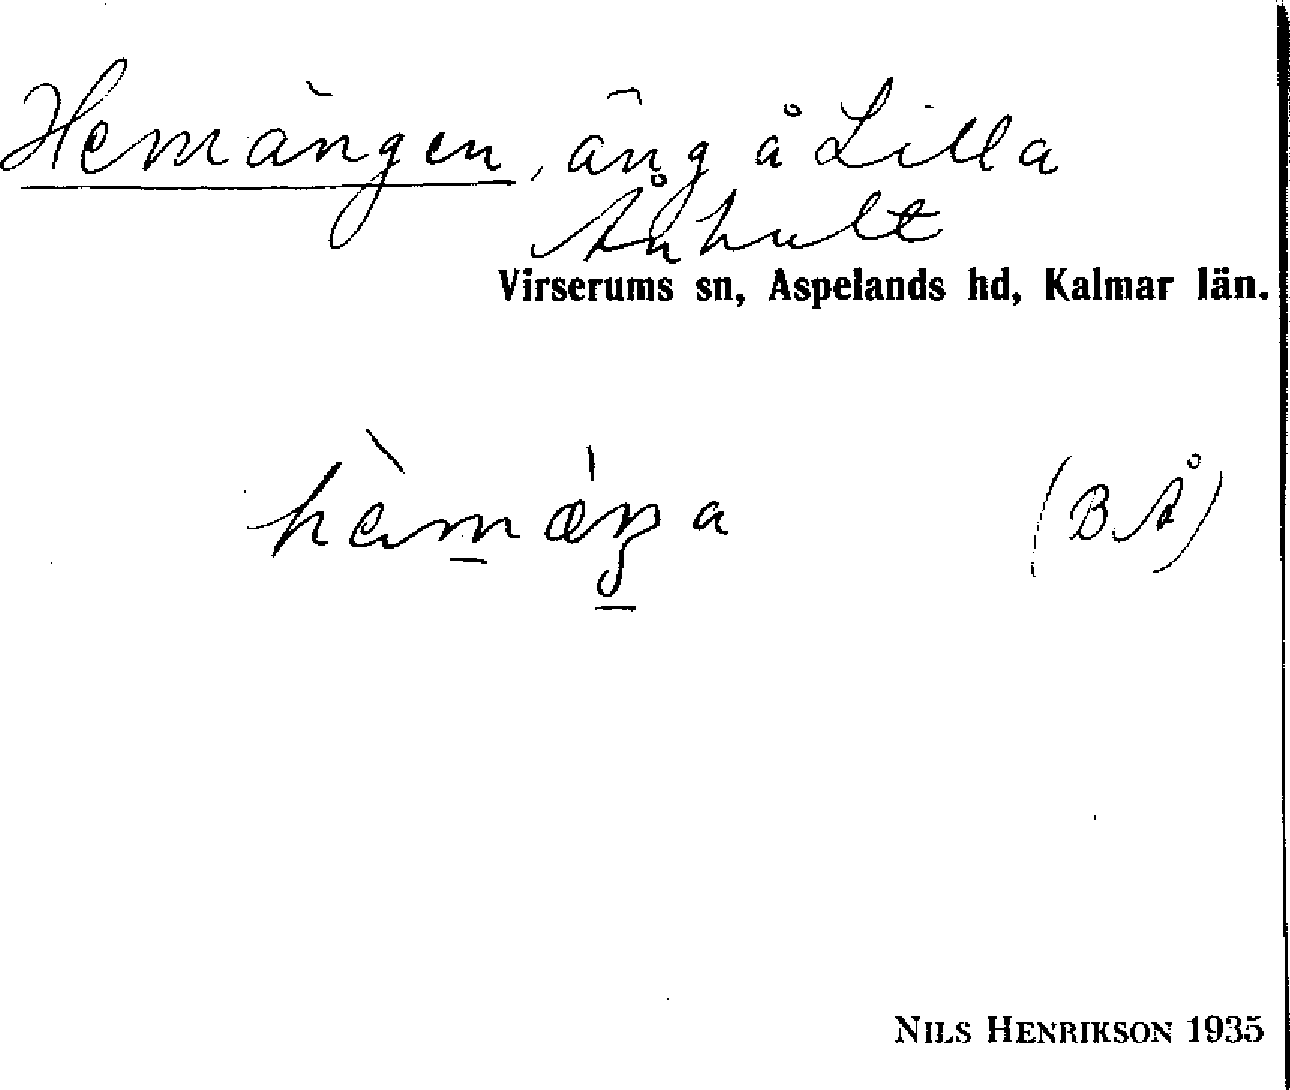 Hemängen, äng å Lilla
Åhult
Virserums sn, Aspelands hd, Kalmar län.
(B Å)
NILS HENRIKSON 1935